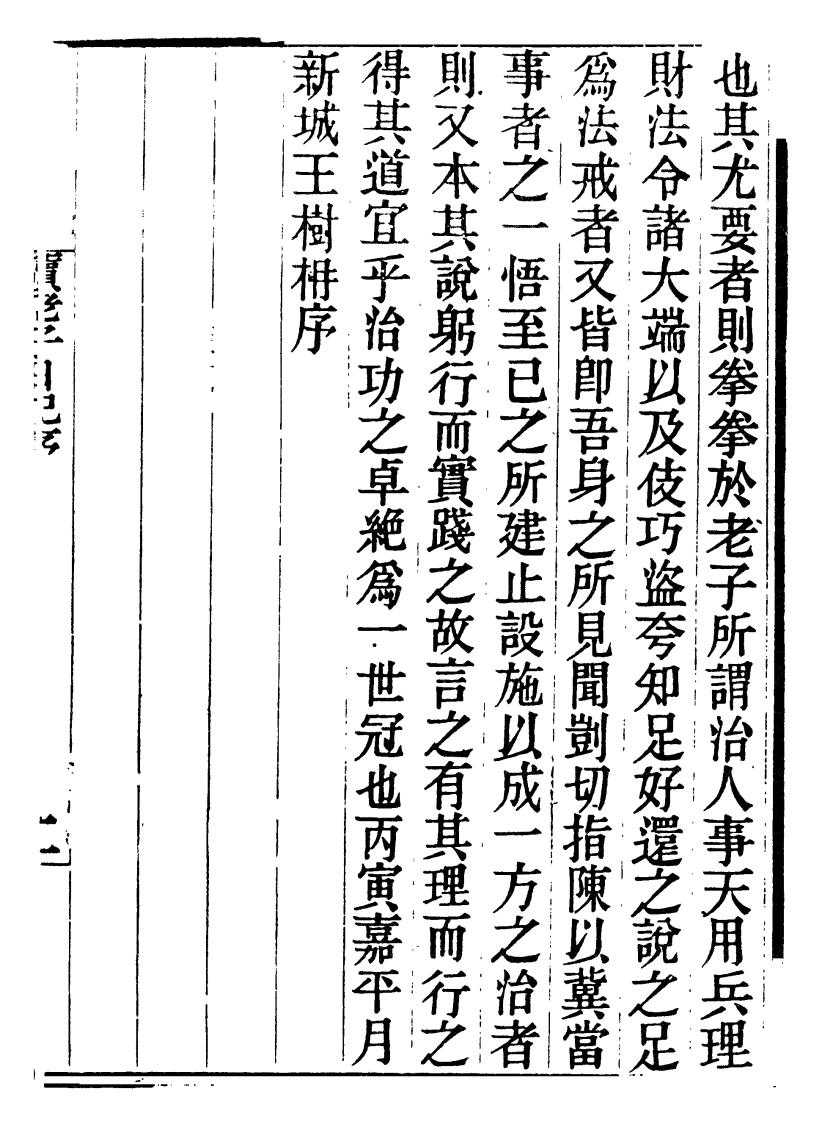 也其尤要者則拳拳於老子所謂治人事天用兵理
財法令諸大端以及伎巧盜夸知足好還之說之足
爲法戒者又皆卽吾身之所見聞剴切指陳以冀當
事者之一悟至已之所建止設施以成一方之治者
則又本其說躬行而實踐之故言之有其理而行之
得其道宜乎治功之卓絕爲一世冠也丙寅嘉平月
新城王樹枏序
二